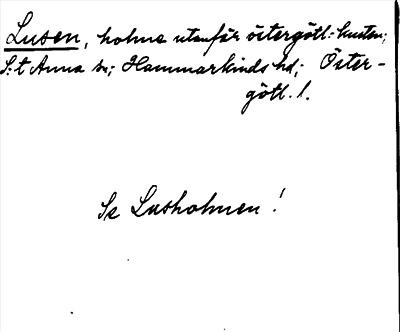 Lusen, holme utanför östergötl.-kusten;
S:t Anna sn; Hammarkinds hd; Öster-
götl. l.
Se Lusholmen!